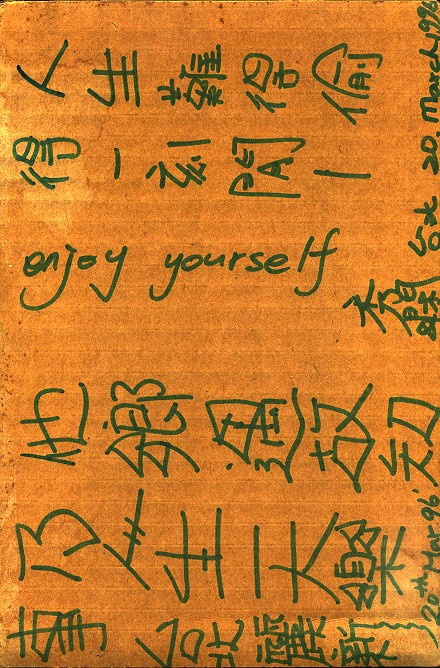 人生難得偷
得一刻閒
enjoy yourself
台北 20 March 1996
他鄉遇故知
乃人生一大樂
事 台北
20th Mar 96'